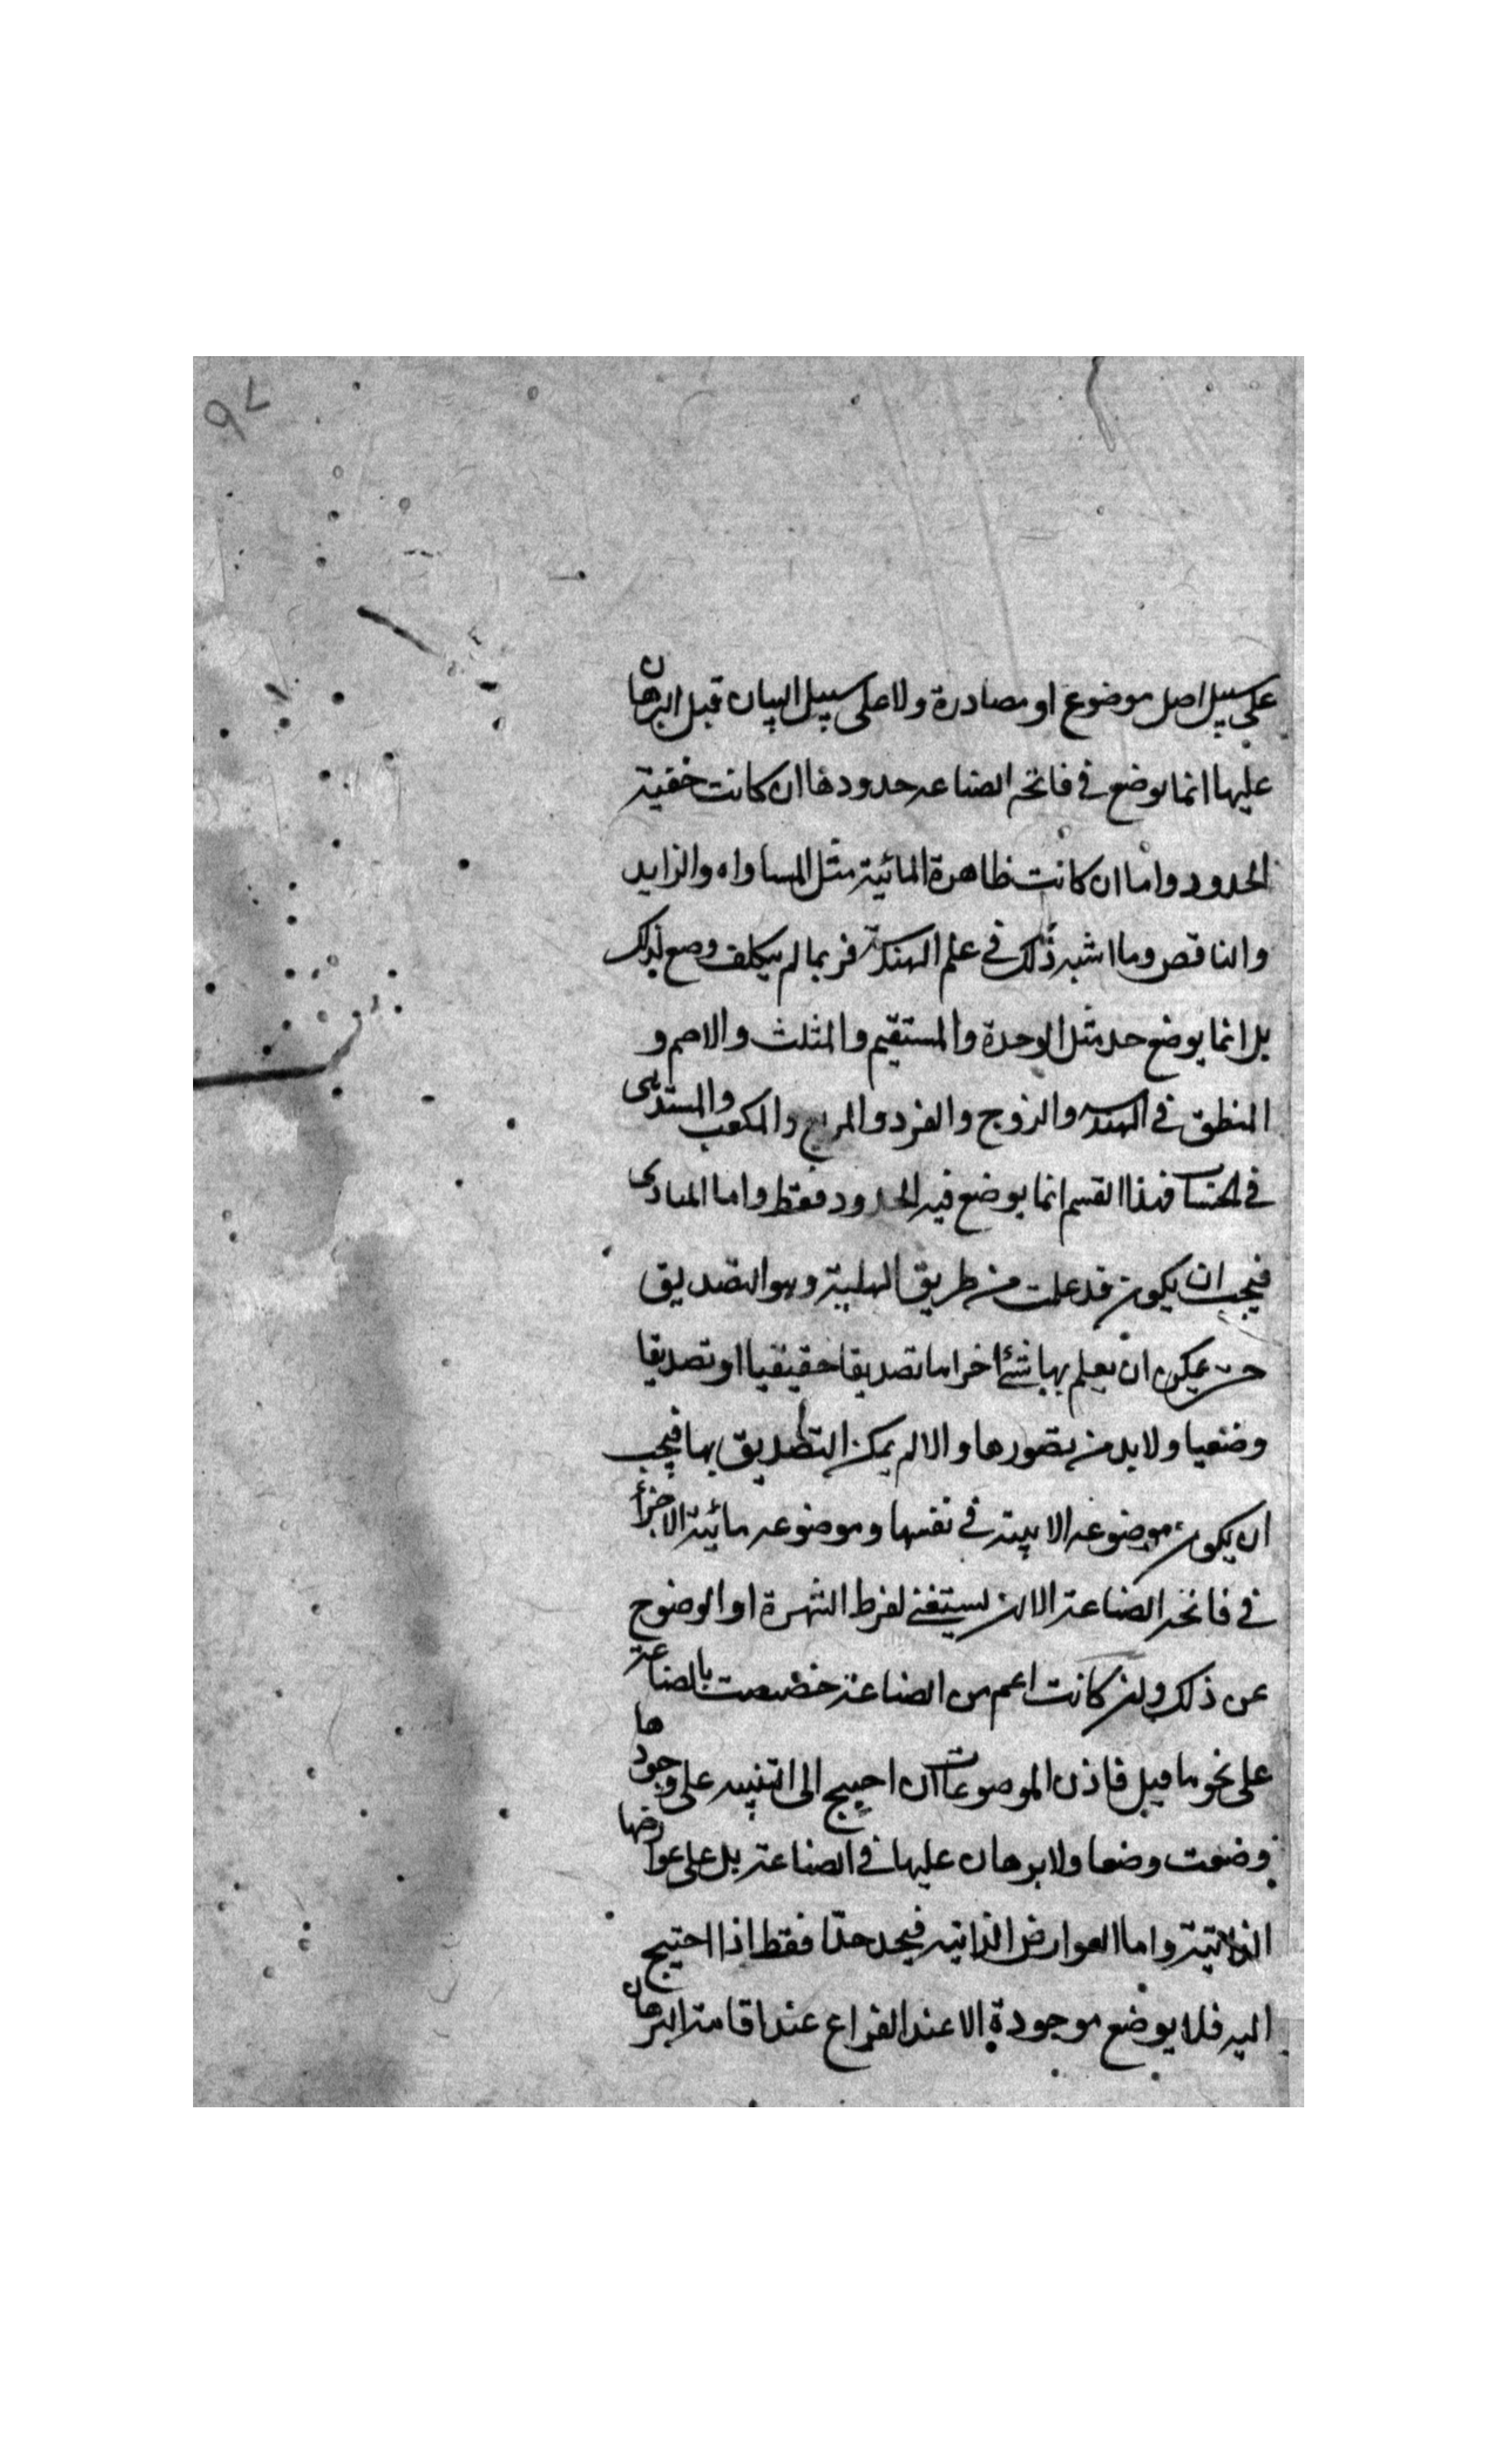 ٩٧
على سبيل اصل موضوع او مصادرة ولا على سبيل البيان قبل البرهان
عليها انما يوضع في فاتحه الصناعه حدودها ان كانت خفية
الحدود واما ان كانت ظاهرة المائية مثل المساواه والزايد
والناقص وما اشبه ذلك في علم الهندسة فربما لم يتكلف وضع لذلك
بل انما يوضع حد مثل الوحدة والمستقيم والمثلث والاصم و
المنطق في الهندسه والزوج والفرد والمربع والمكعب والمستدير
في الحساب فهذا القسم انما يوضع فيه الحدود فقط واما المبادى
فيجب ان يكون قد علمت من طريق الهلية وهو التصديق
حتى يمكن ان يعلم بها شئ اخر اما تصديقا حقيقيا او تصديقا
وضعيا ولا بد من تصورها والا لم يمكن التصديق بها فيجب
ان يكون موضوعه الانية في نفسها وموضوعه مائية الاجزأ
في فاتحه الصناعة الا ان يستغنى لفرط الشهرة او الوضوح
عن ذلك وان كانت اعم من الصناعة خصصت بالصناعة
على نحو ما قيل فاذن الموضوعات ان احتيج الى التنبيه على وجودها
وضعت وضعا ولا برهان عليها في الصناعة بل على عوارضها
الذاتية واما العوارض الذاتيه فيحد حدا فقط اذا احتيج
اليه فلا يوضع موجودة الا عند الفراغ عند اقامة البرهان